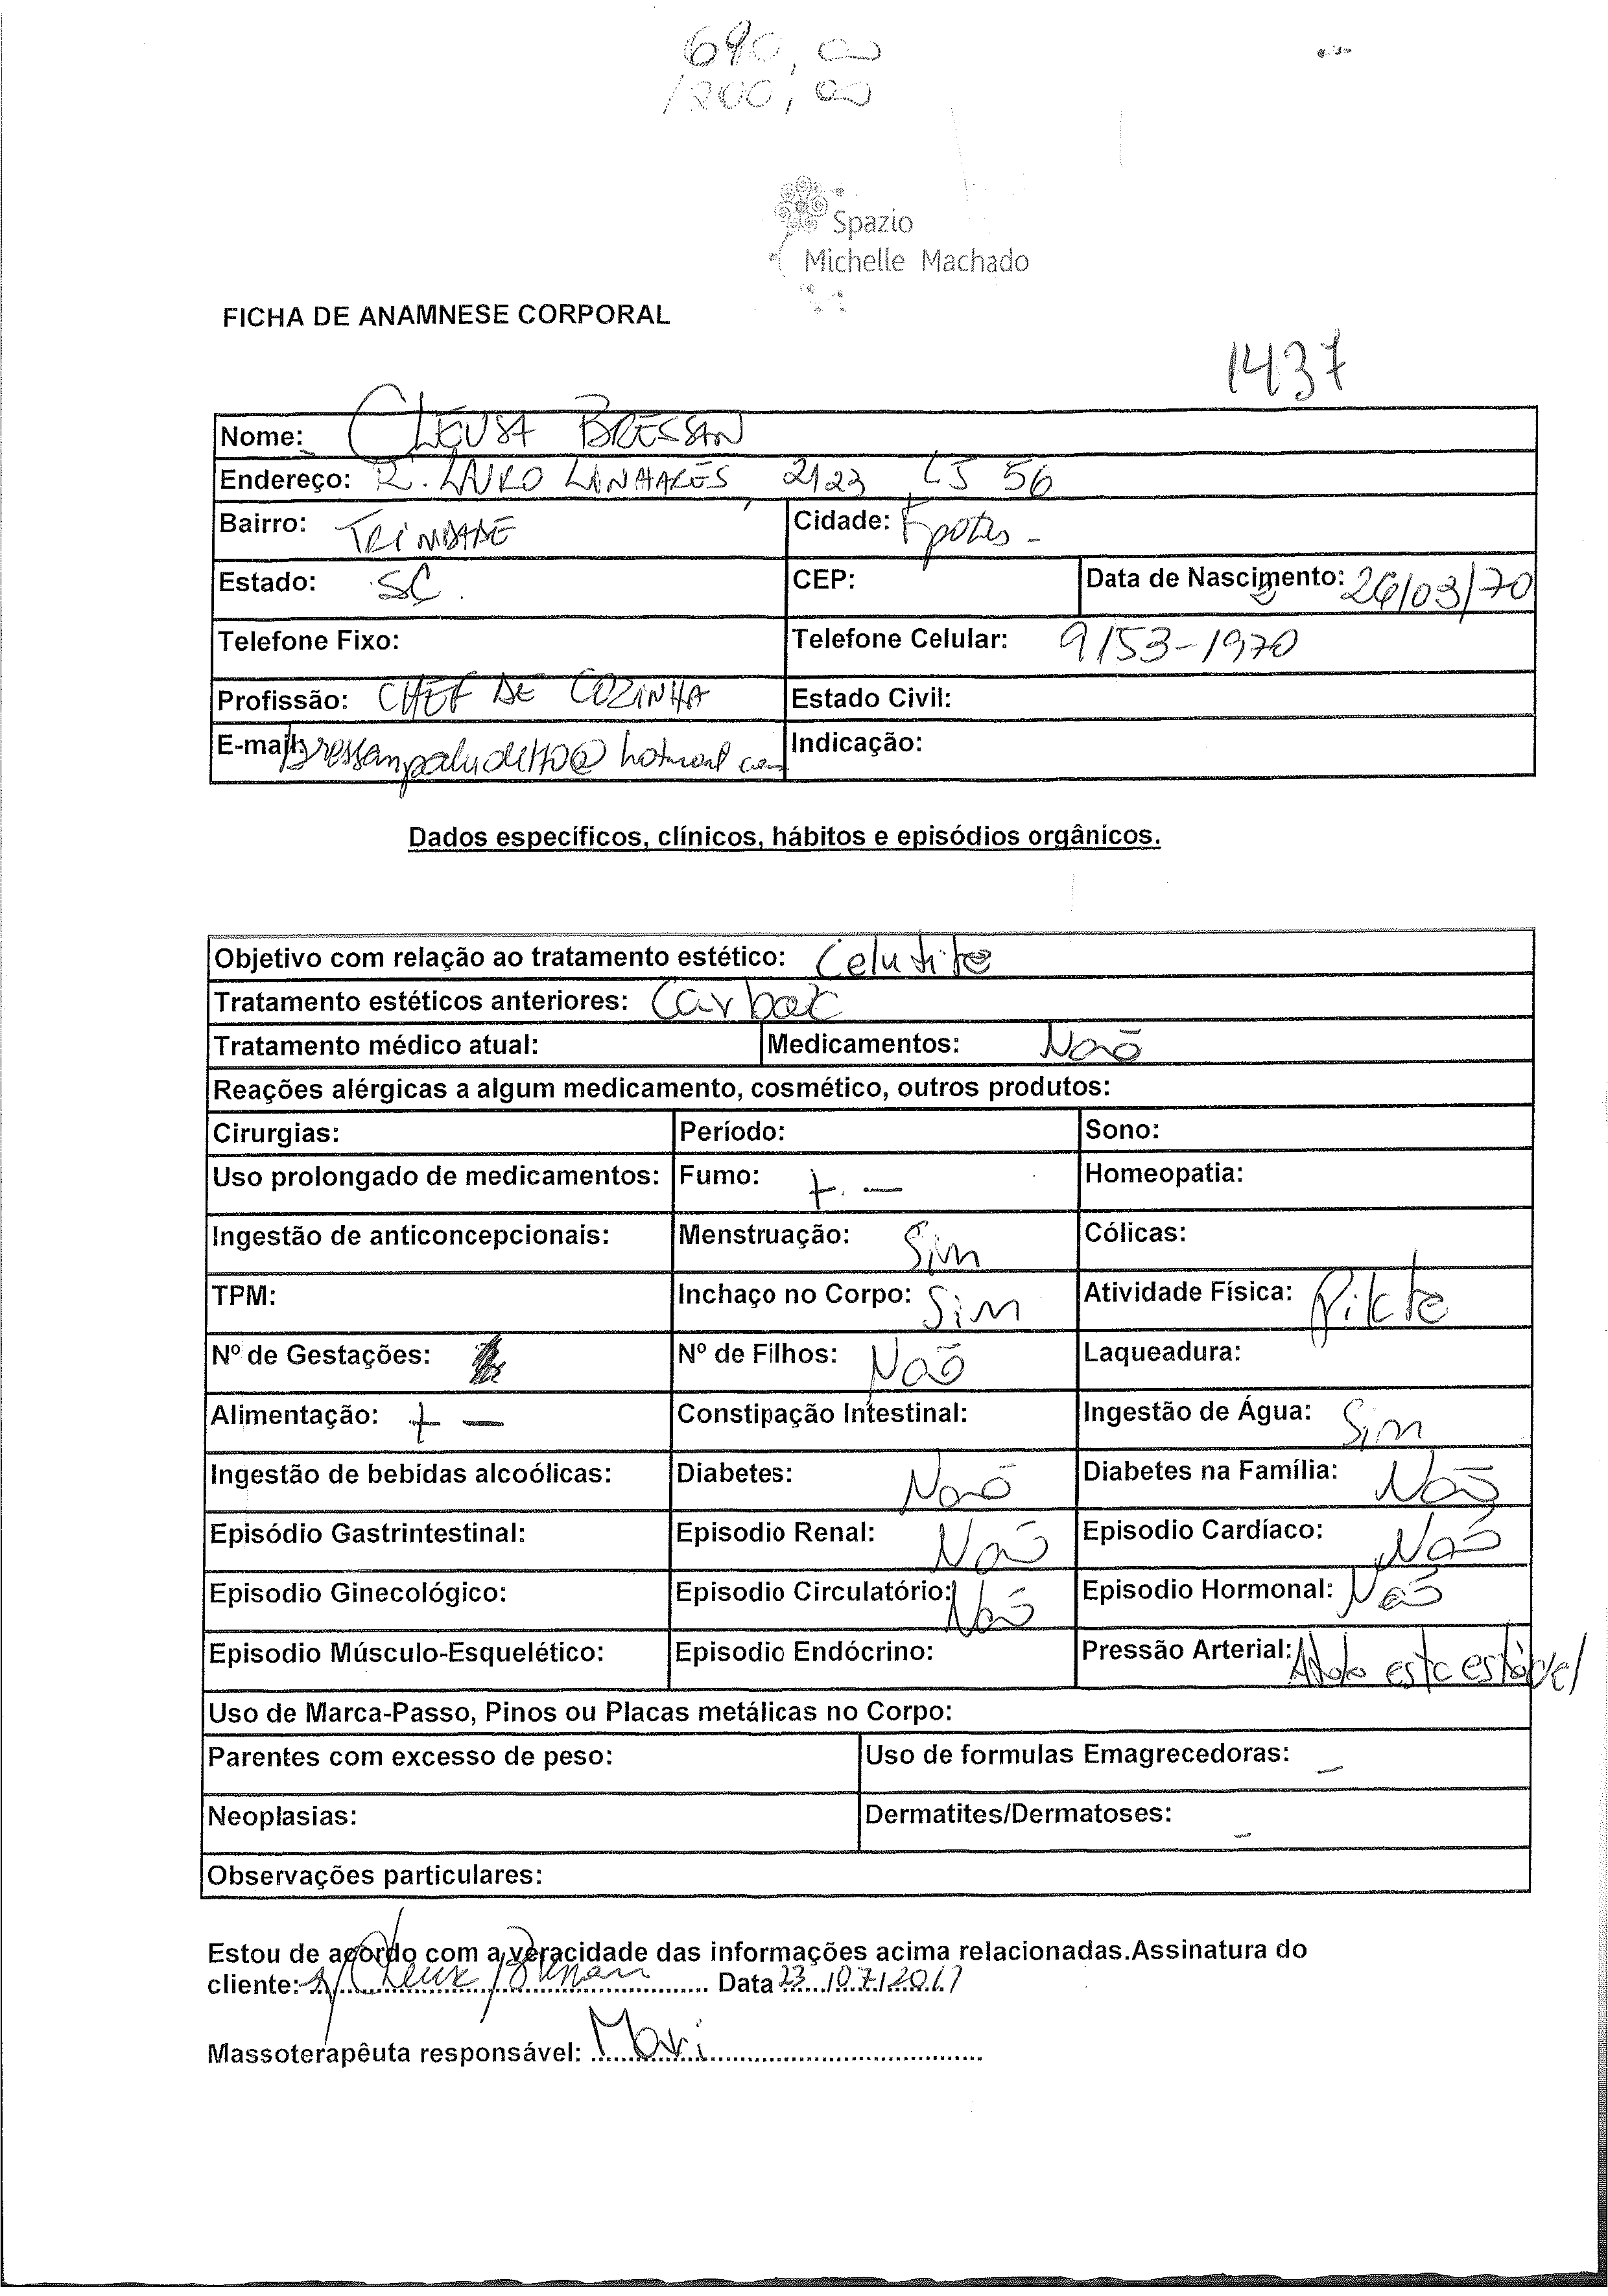 690,00
1200,00
Spazio
Michelle Machado
FICHA DE ANAMNESE CORPORAL
1437
Nome: CLEUSA BRESSAN
Endereço: R. LAURO LINHARES, 2123 LJ 56
Bairro: TRINDADE Cidade: Fpolis -
Estado: SC. CEP: Data de Nascimento: 26/03/70
Telefone Fixo: Telefone Celular: 9153-1970
Profissão: CHEF DE COZINHA Estado Civil:
E-mail: Indicação:
Dados específicos, clínicos, hábitos e episódios orgânicos.
Objetivo com relação ao tratamento estético: Celutite
Tratamento estéticos anteriores:
Tratamento médico atual: Medicamentos: Não
Reações alérgicas a algum medicamento, cosmético, outros produtos:
Cirurgias: Período: Sono:
Uso prolongado de medicamentos: Fumo: + - Homeopatia:
Ingestão de anticoncepcionais: Menstruação: Sim Cólicas:
TPM: Inchaço no Corpo: Sim Atividade Física:
Nº de Gestações: Nº de Filhos: Não Laqueadura:
Alimentação: + - Constipação Intestinal: Ingestão de Água: Sim
Ingestão de bebidas alcoólicas: Diabetes: Não Diabetes na Família: Não
Episódio Gastrintestinal: Episodio Renal: Não Episodio Cardíaco: Não
Episodio Ginecológico: Episodio Circulatório: Não Episodio Hormonal: Não
Episodio Músculo-Esquelético: Episodio Endócrino: Pressão Arterial: esta estável
Uso de Marca-Passo, Pinos ou Placas metálicas no Corpo:
Parentes com excesso de peso: Uso de formulas Emagrecedoras: -
Neoplasias: Dermatites/Dermatoses: -
Observações particulares:
Estou de acordo com a veracidade das informações acima relacionadas.Assinatura do
cliente: Data 23/07/2017
Massoterapêuta responsável: Mari